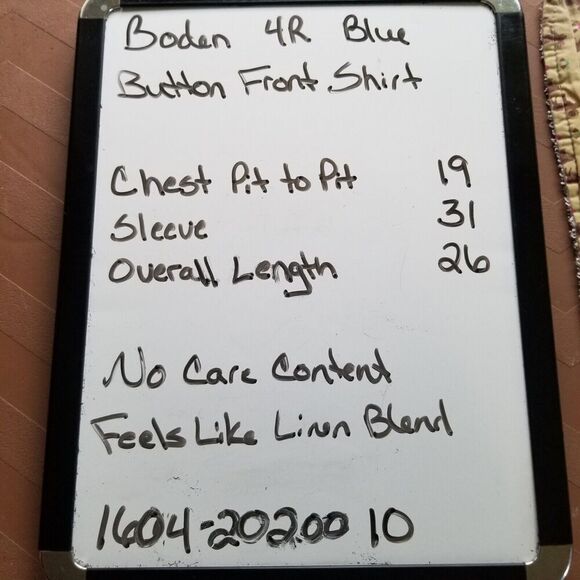 Boden 4R Blue
Button Front Shirt
Chest Pit to Pit 19
Sleeve 31
Overall Length 26
No Care Content
Feels Like Linen Blend
1604-202200 10